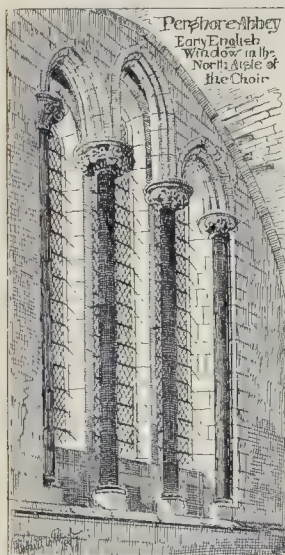 Pershore Abbey
Early English
Window in the
North Aisle of
the Choir